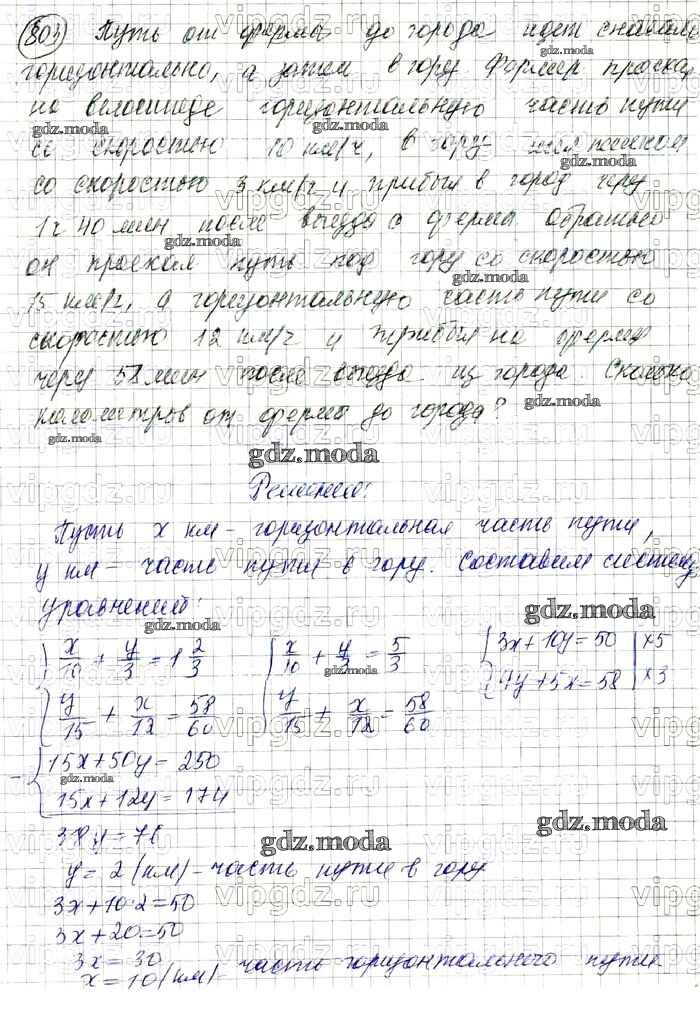 803 Путь от фермы до города идет сначала
горизонтально, а затем в гору. Фермер проехал
на велосипеде горизонтальную часть пути
со скоростью 10 км/ч, в гору пешком
со скоростью 3 км/ч и прибыл в город через
1ч 40 мин после выезда с фермы. Обратно
он проехал путь под гору со скоростью
15 км/ч, а горизонтальную часть пути со
скоростью 12 км/ч и прибыл на ферму
через 58 мин после выезда из города. Сколько
километров от фермы до города?
Решение:
Пусть x км – горизонтальная часть пути,
y км – часть пути в гору. Составим систему
уравнений:
{ x/10 + y/3 = 1 2/3 { x/10 + y/3 = 5/3 { 3x + 10y = 50 | ×5
{ y/15 + x/12 = 58/60 { y/15 + x/12 = 58/60 { 4y + 5x = 58 | ×3
– { 15x + 50y = 250
{ 15x + 12y = 174
38y = 76
y = 2 (км) – часть пути в гору
3x + 10·2 = 50
3x + 20 = 50
3x = 30
x = 10 (км) – часть горизонтального пути
gdz.moda
vipgdz.ru